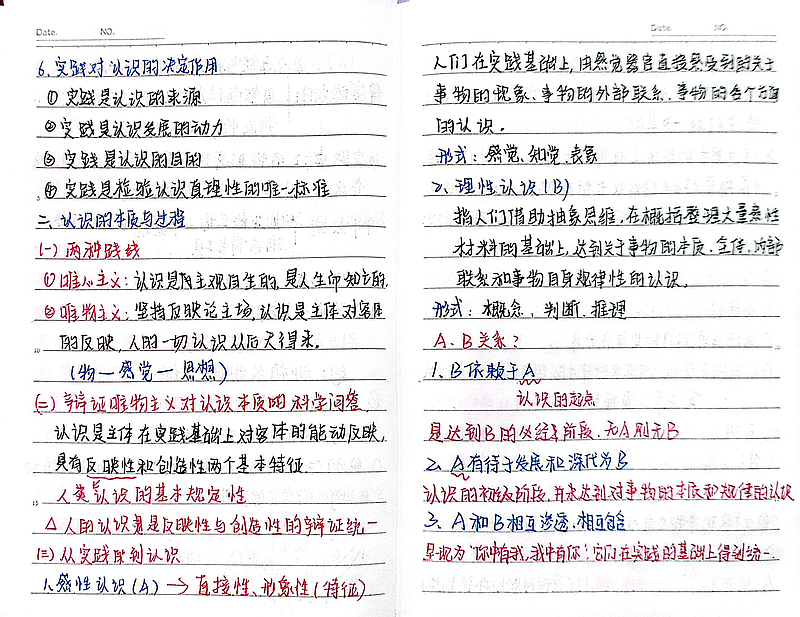 Date. NO.
6. 实践对认识的决定作用
① 实践是认识的来源
② 实践是认识发展的动力
③ 实践是认识的目的
④ 实践是检验认识真理性的唯一标准
二、认识的本质与过程
(一) 两种路线
① 唯心主义：认识是主观自生的，是人生而知之的.
② 唯物主义：坚持反映论立场，认识是主体对客体
的反映，人的一切认识从后天得来。
(物一感觉一思想)
(二) 辩证唯物主义对认识本质的科学回答.
认识是主体在实践基础上对客体的能动反映，
具有反映性和创造性两个基本特征
人类认识的基本规定性
△ 人的认识是反映性与创造性的辩证统一
(三) 从实践到认识
1. 感性认识(A) → 直接性、形象性(特征)
Date. NO.
人们在实践基础上，由感觉器官直接感受到的关于
事物的现象、事物的外部联系、事物的各个方面
的认识。
形式：感觉、知觉、表象
2. 理性认识(B)
指人们借助抽象思维，在概括整理大量感性
材料的基础上，达到关于事物的本质、全体、内部
联系和事物自身规律性的认识.
形式：概念、判断、推理
A、B关系？
1. B依赖于A
认识的起点
是达到B的必经阶段、无A则无B
2. A有待于发展和深化为B
认识的初级阶段，并未达到对事物的本质和规律的认识
3. A和B相互渗透、相互包含
呈现为"你中有我，我中有你"，它们在实践的基础上得到统一.